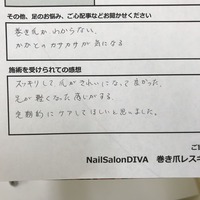 その他、足のお悩み、ご心配事などお聞かせください
巻き爪がわからない、
かかとのカサカサが気になる
施術を受けられての感想
スッキリして爪がきれいになって良かった。
足が軽くなった感じがする。
定期的にケアしてほしいと思いました。
NailSalonDIVA 巻き爪レスキ